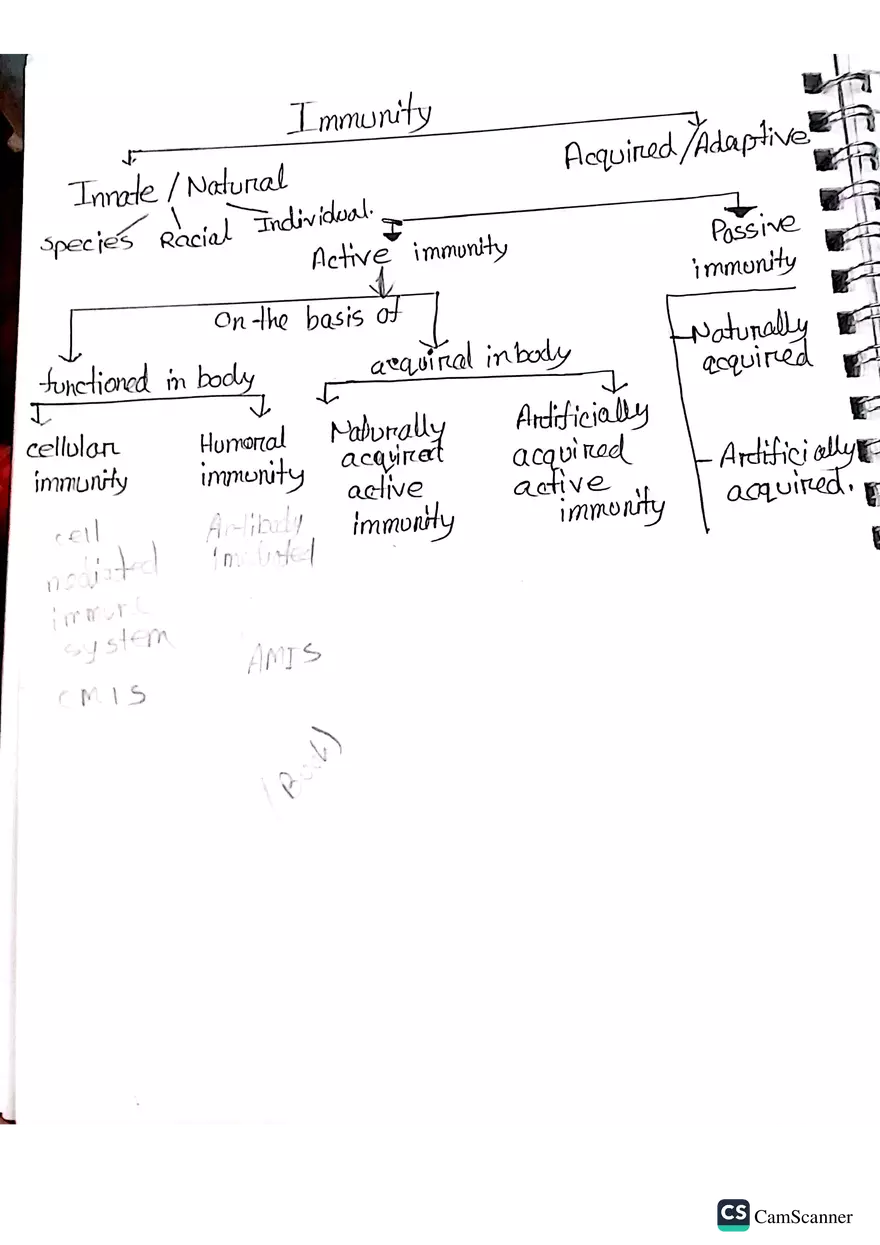 Immunity
Acquired/Adaptive
Innate / Natural
species Racial Individual.
Active immunity
Passive
immunity
On the basis of
functioned in body
acquired in body
Naturally
acquired
Artificially
acquired.
cellular
immunity
Humoral
immunity
Naturally
acquired
active
immunity
Artificially
acquired
active
immunity
cell
mediated
immune
system
CMIS
Antibody
AMIS
CS CamScanner